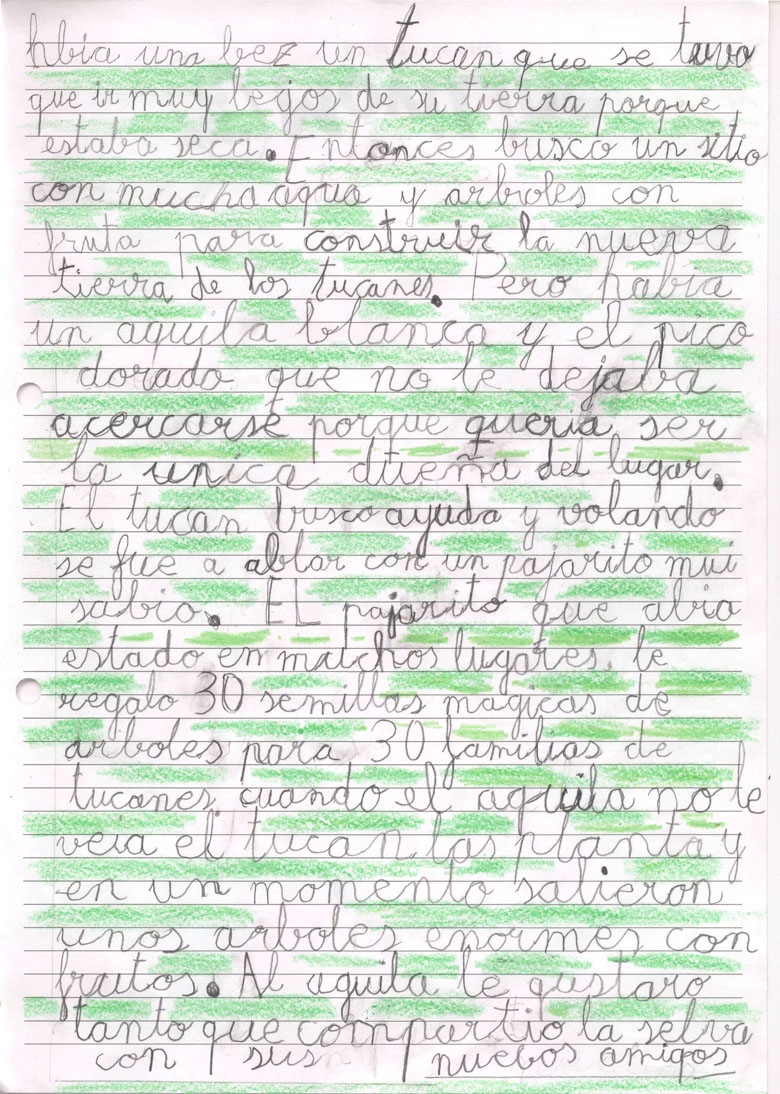 hbia una bez un tucan que se tuvo
que ir muy legos de su tierra porque
estaba seca. Entonces busco un sitio
con mucha agua y arboles con
fruta para construir la nueva
tierra de los tucanes. Pero habia
un aguila blanca y el pico
dorado que no le dejaba
acercarse porque queria ser
la unica dueña del lugar.
El tucan busco ayuda y volando
se fue a ablar con un pajarito mui
sabio. EL pajarito que abia
estado en muchos lugares le
regalo 30 semillas magicas de
arboles para 30 familias de
tucanes, cuando el aguila no le
veia el tucan las planta y
en un momento salieron
unos arboles enormes con
frutos. Al aguila le gustaro
tanto que compartio la selva
con sus nuebos amigos